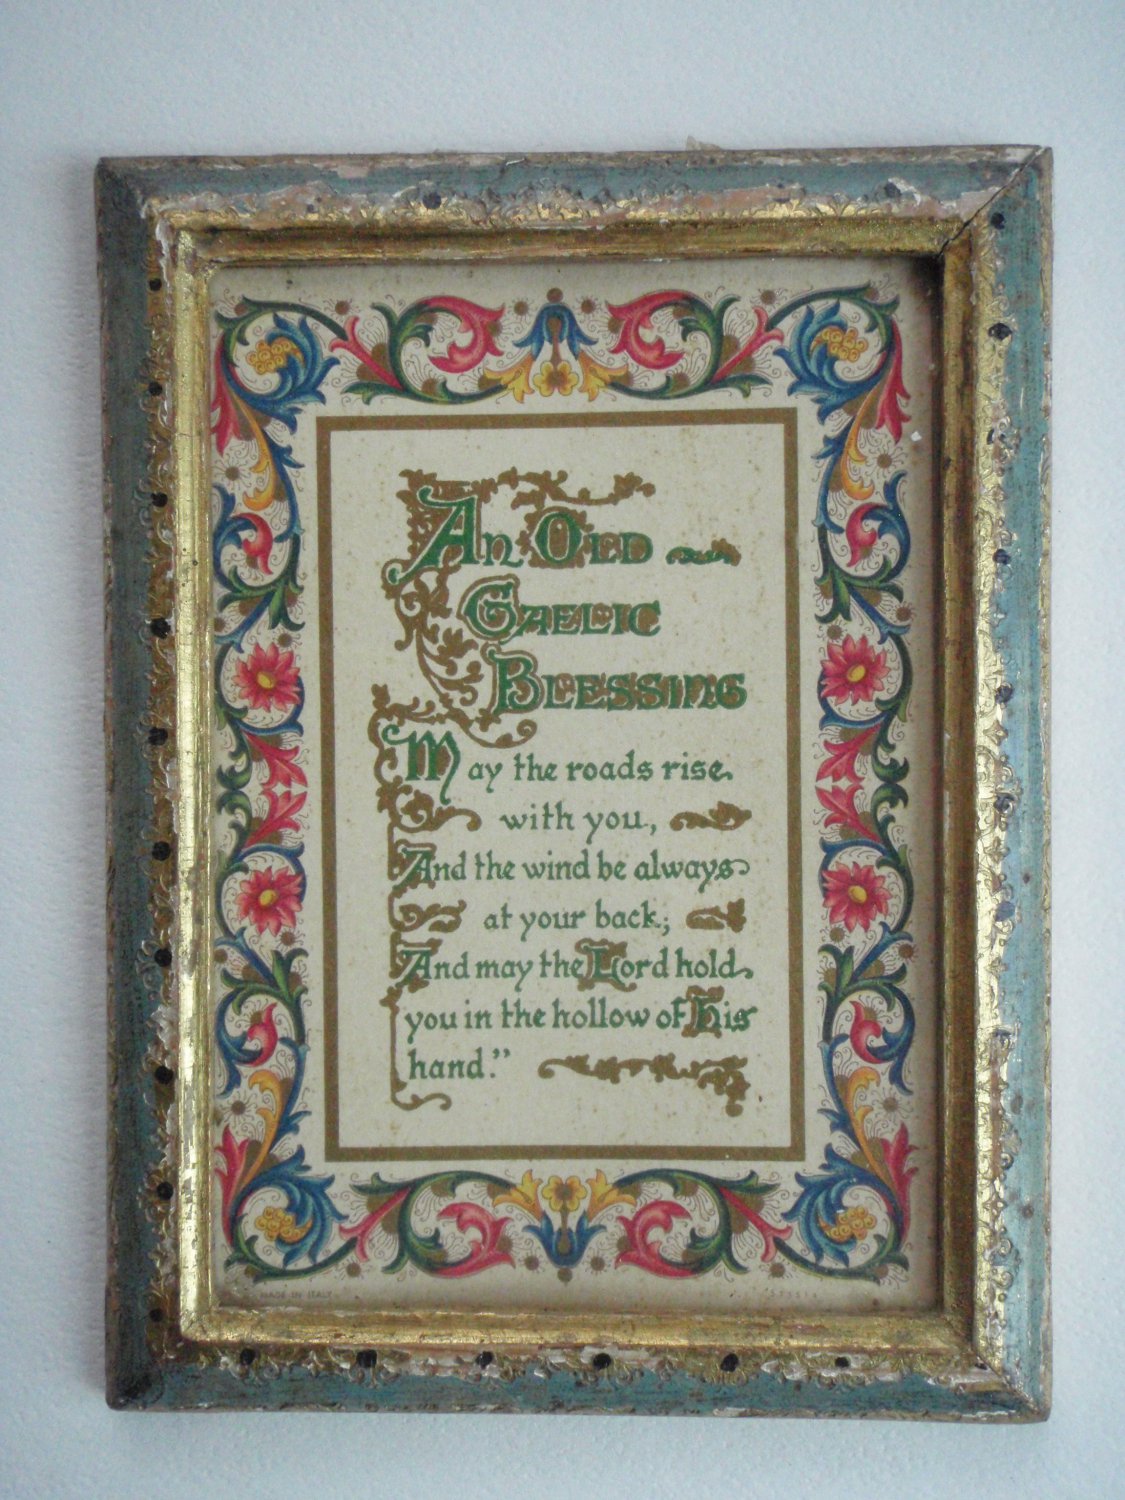 An Old
Gaelic
Blessing
May the roads rise
with you,
And the wind be always
at your back;
And may the Lord hold
you in the hollow of His
hand."
MADE IN ITALY